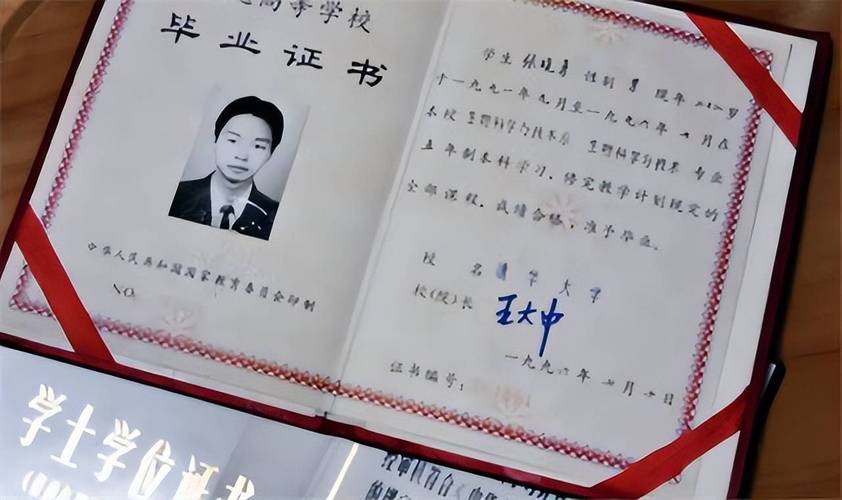 高等学校
毕业证书
中华人民共和国国家教育委员会印制
NO.
学生 张晓勇 性别 男 现年 二十二岁
于一九九一年九月至一九九六年七月在
本校 生物科学与技术系 生物科学与技术 专业
五年制本科学习，修完教学计划规定的
全部课程，成绩合格，准予毕业。
校 名 清华大学
校(院)长 王大中
一九九六年七月 日
证书编号：
学士学位证书